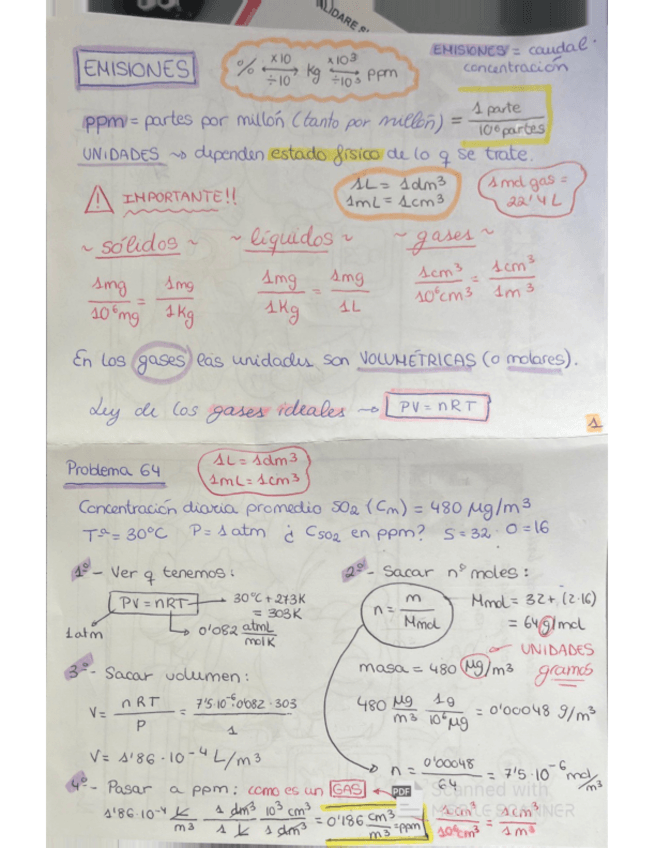 LIDARE
EMISIONES
% ×10 ÷10 Kg ×10³ ÷10³ ppm
EMISIONES = caudal · concentración
ppm = partes por millón (tanto por millón) = 1 parte / 10⁶ partes
UNIDADES → dependen estado físico de lo q se trate.
⚠ IMPORTANTE!!
1L = 1dm³
1mL = 1cm³
1mol gas = 22'4 L
~ sólidos ~ ~ líquidos ~ ~ gases ~
1mg / 10⁶mg = 1mg / 1Kg
1mg / 1Kg = 1mg / 1L
1cm³ / 10⁶cm³ = 1cm³ / 1m³
En los gases las unidades son VOLUMÉTRICAS (o molares).
Ley de los gases ideales → PV = nRT
1
Problema 64
1L = 1dm³
1mL = 1cm³
Concentración diaria promedio SO₂ (Cm) = 480 µg/m³
Tª = 30ºC P = 1 atm ¿ CSO₂ en ppm? S = 32 · O = 16
1º- Ver q tenemos:
PV = nRT
30ºC + 273K = 303K
1atm
0'082 atmL / molK
2º- Sacar nº moles:
n = m / Mmol
Mmol = 32 + (2·16)
= 64 g/mol
UNIDADES
gramos
masa = 480 µg/m³
480 µg/m³ 1g / 10⁶µg = 0'00048 g/m³
n = 0'00048 / 64 = 7'5·10⁻⁶ mol/m³
3º- Sacar volumen:
V = nRT / P = 7'5·10⁻⁶·0'082·303 / 1
V = 1'86·10⁻⁴ L/m³
4º- Pasar a ppm: como es un GAS
1'86·10⁻⁴ L/m³ 1 dm³ / 1 L 10³ cm³ / 1 dm³ = 0'186 cm³/m³ = ppm
1cm³ / 10⁶cm³ = 1cm³ / 1m³
PDF Scanned with
MOBILE SCANNER